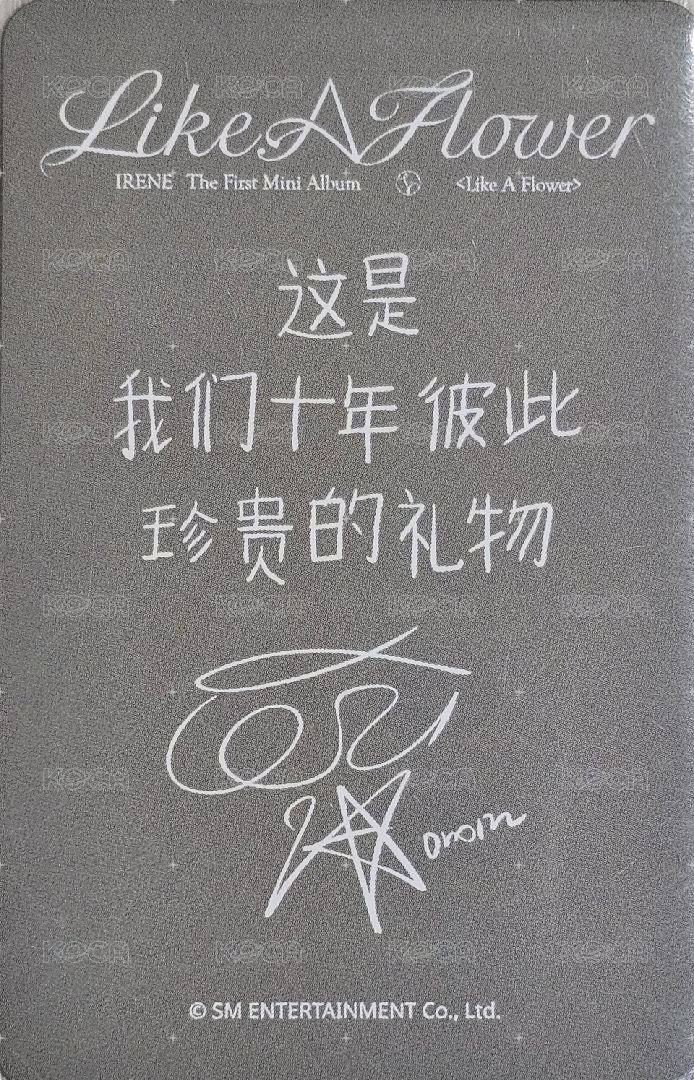 Like A Flower
IRENE The First Mini Album <Like A Flower>
这是
我们十年彼此
珍贵的礼物
© SM ENTERTAINMENT Co., Ltd.
KOCA